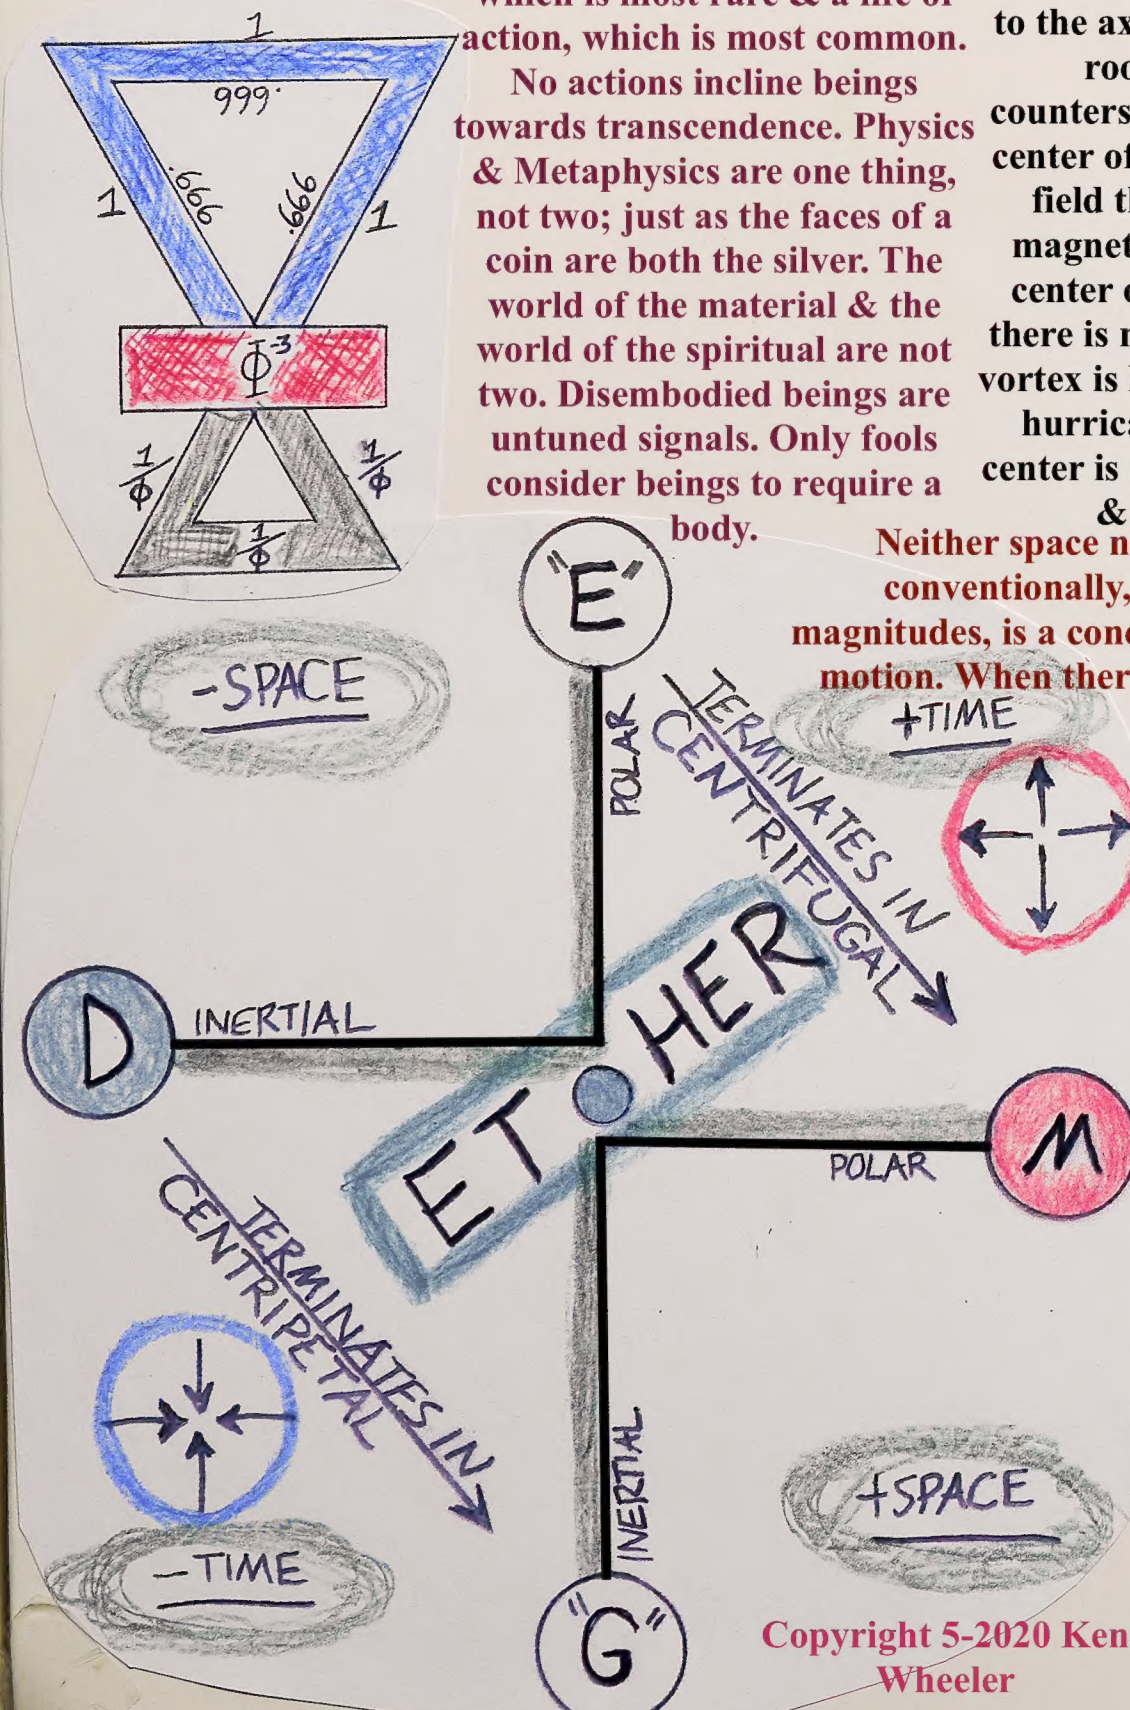 1
.999
.999
.999
1
1
Φ-3
1/Φ
1/Φ
1/Φ
which is most rare & a life of
action, which is most common.
No actions incline beings
towards transcendence. Physics
& Metaphysics are one thing,
not two; just as the faces of a
coin are both the silver. The
world of the material & the
world of the spiritual are not
two. Disembodied beings are
untuned signals. Only fools
consider beings to require a
body.
to the ax
roo
counters
center of
field th
magnet
center o
there is n
vortex is
hurrica
center is
&
Neither space n
conventionally,
magnitudes, is a conc
motion. When ther
"E"
-SPACE
+TIME
POLAR
TERMINATES IN
CENTRIFUGAL
D
INERTIAL
ETHER
M
POLAR
TERMINATES IN
CENTRIPETAL
-TIME
INERTIAL
+SPACE
"G"
Copyright 5-2020 Ken
Wheeler